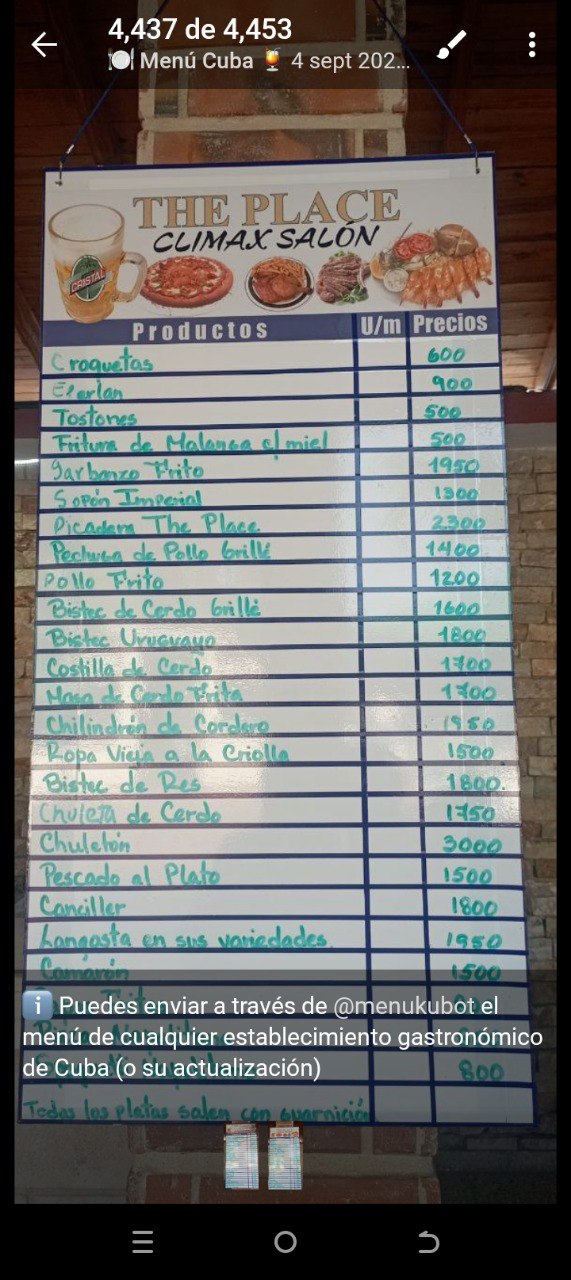 4,437 de 4,453
🍽️ Menú Cuba 🍹 4 sept 202...
THE PLACE
CLIMAX SALÓN
CRISTAL
Productos U/m Precios
Croquetas 600
900
Tostones 500
Fritura de Malanga c/ miel 500
Garbanzo Frito 1950
Sopón Imperial 1300
Picadera The Place 2300
Pechuga de Pollo Grillé 1400
Pollo Frito 1200
Bistec de Cerdo Grillé 1600
Bistec Uruguayo 1800
Costilla de Cerdo 1700
Masa de Cerdo Frita 1700
Chilindrón de Cordero 1950
Ropa Vieja a la Criolla 1500
Bistec de Res 1800
Chuleta de Cerdo 1750
Chuletón 3000
Pescado al Plato 1500
Canciller 1800
Langosta en sus variedades 1950
Camarón 1500
ℹ️ Puedes enviar a través de @menukubot el
menú de cualquier establecimiento gastronómico
de Cuba (o su actualización)
800
Todos los platos salen con guarnición